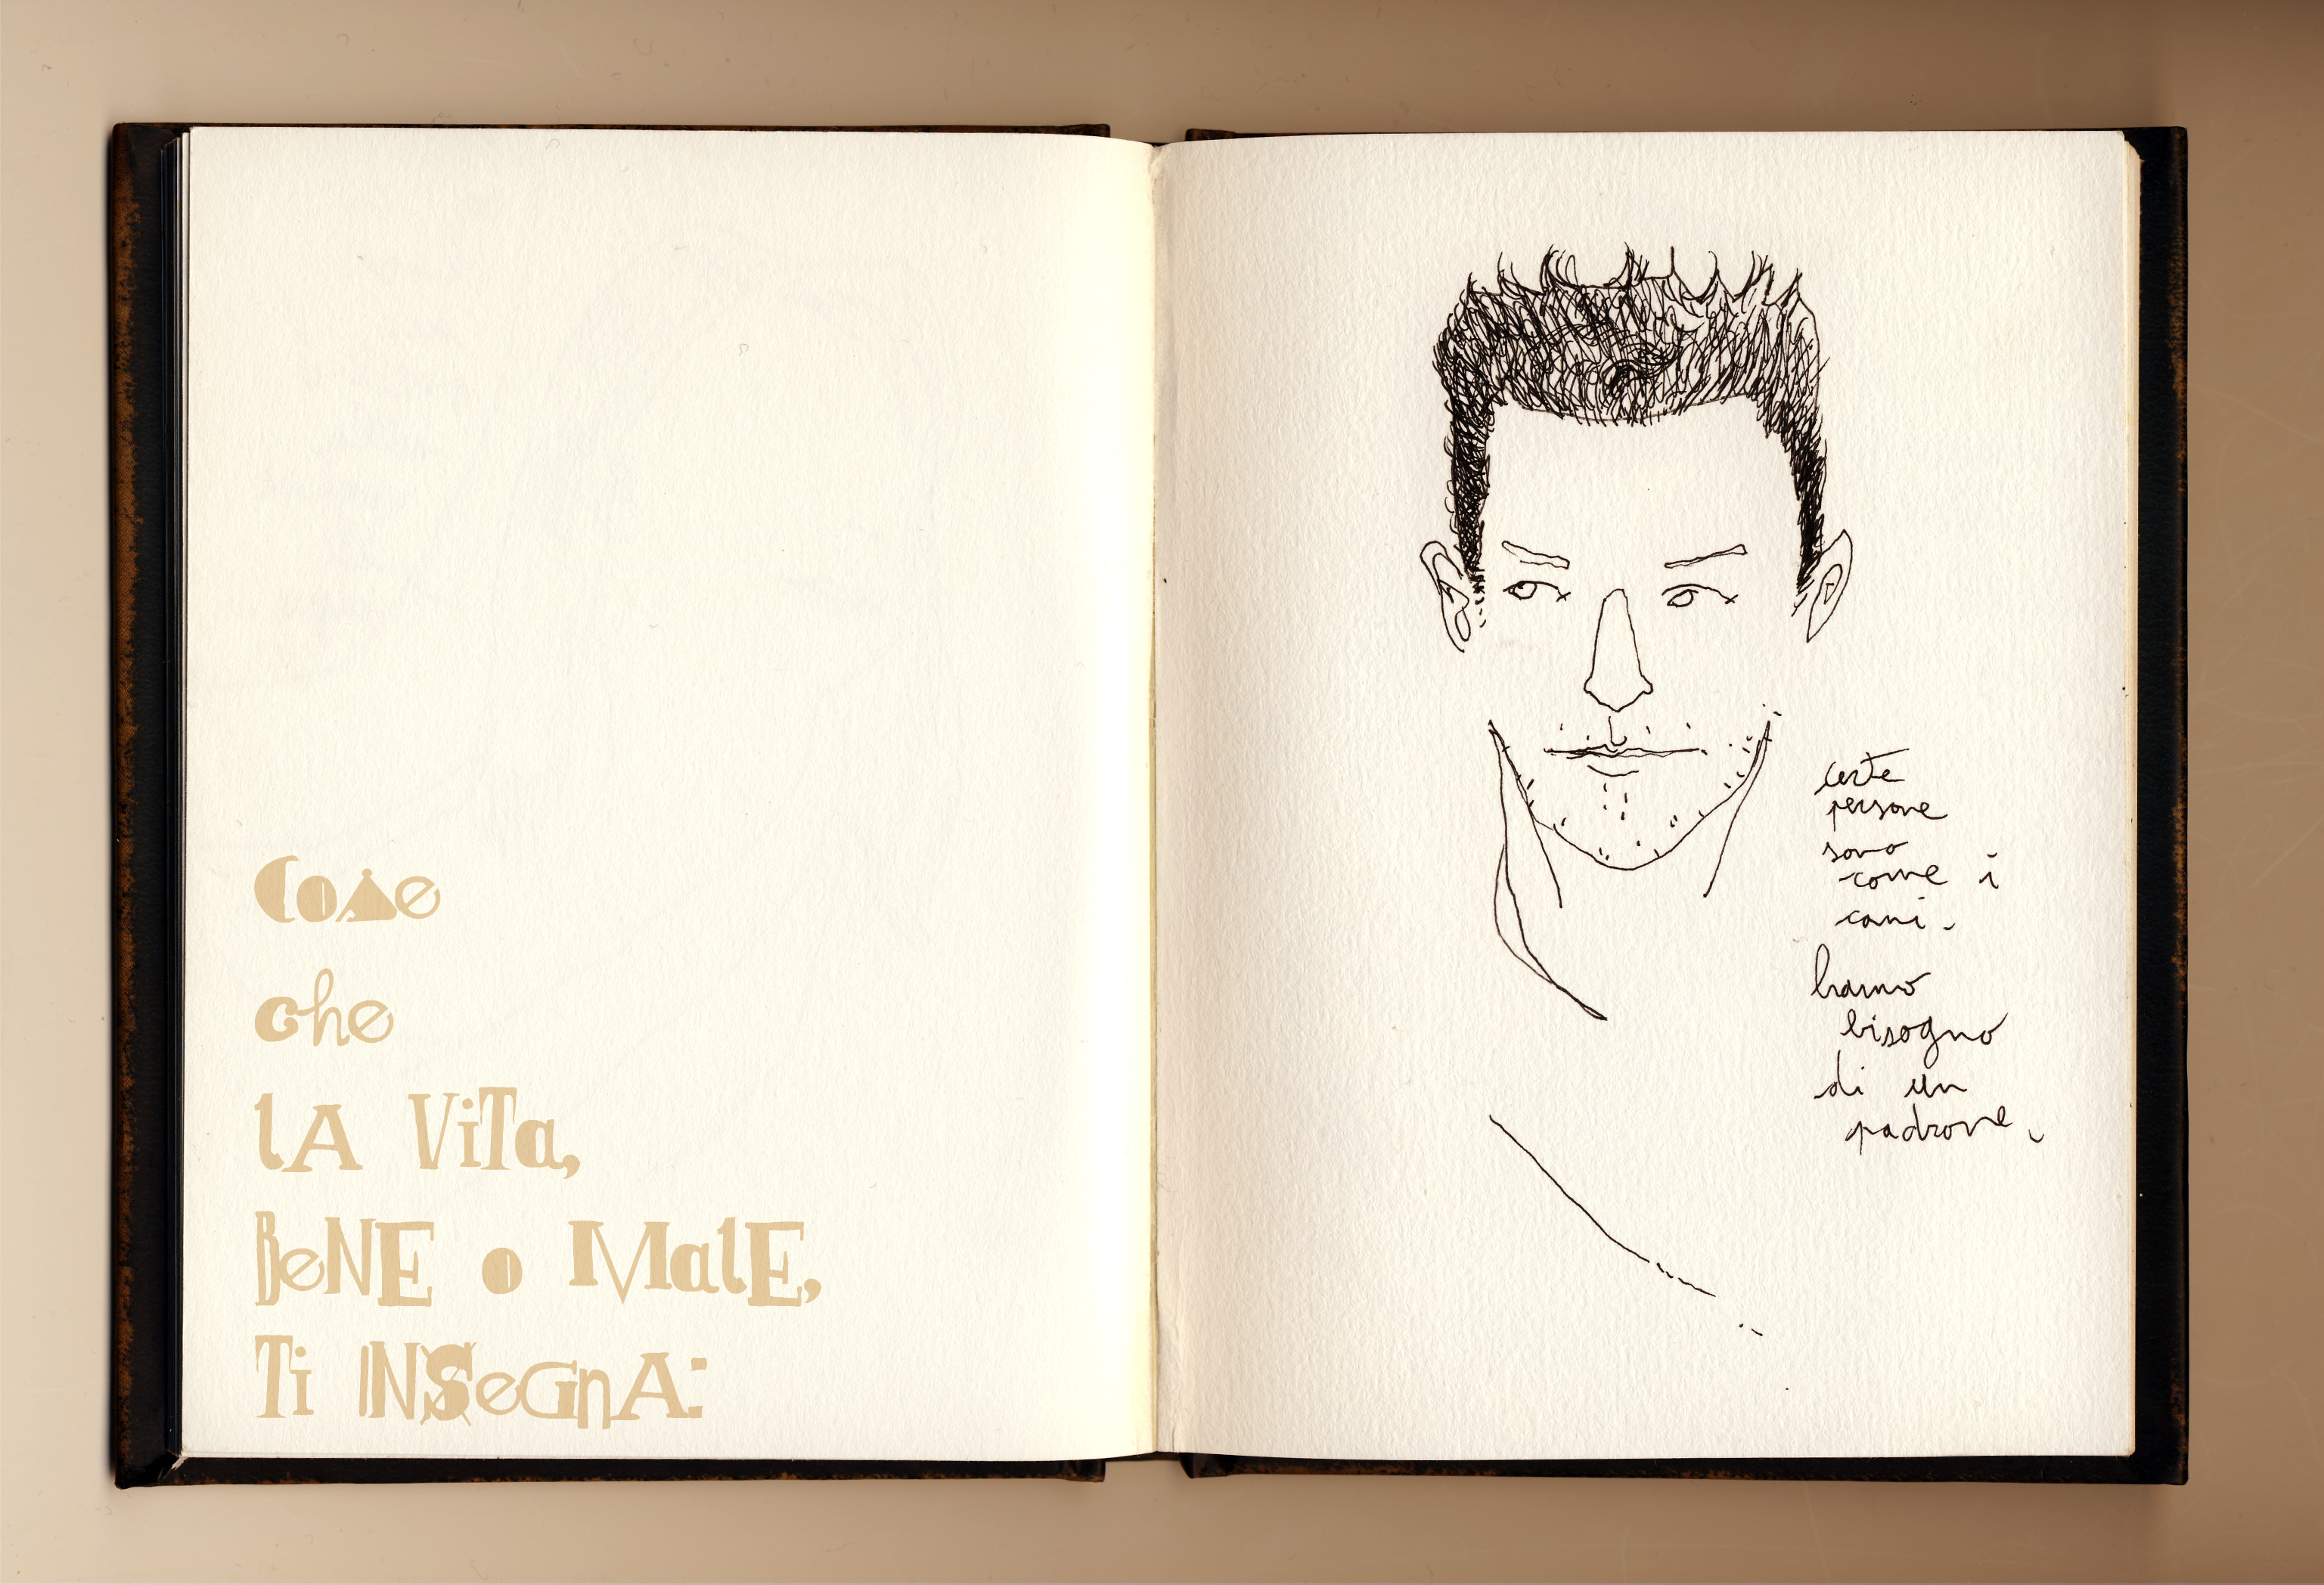 Cose
che
lA ViTa,
BeNE o MalE,
Ti INSeGnA:
certe
persone
sono
come i
cani.
hanno
bisogno
di un
padrone.